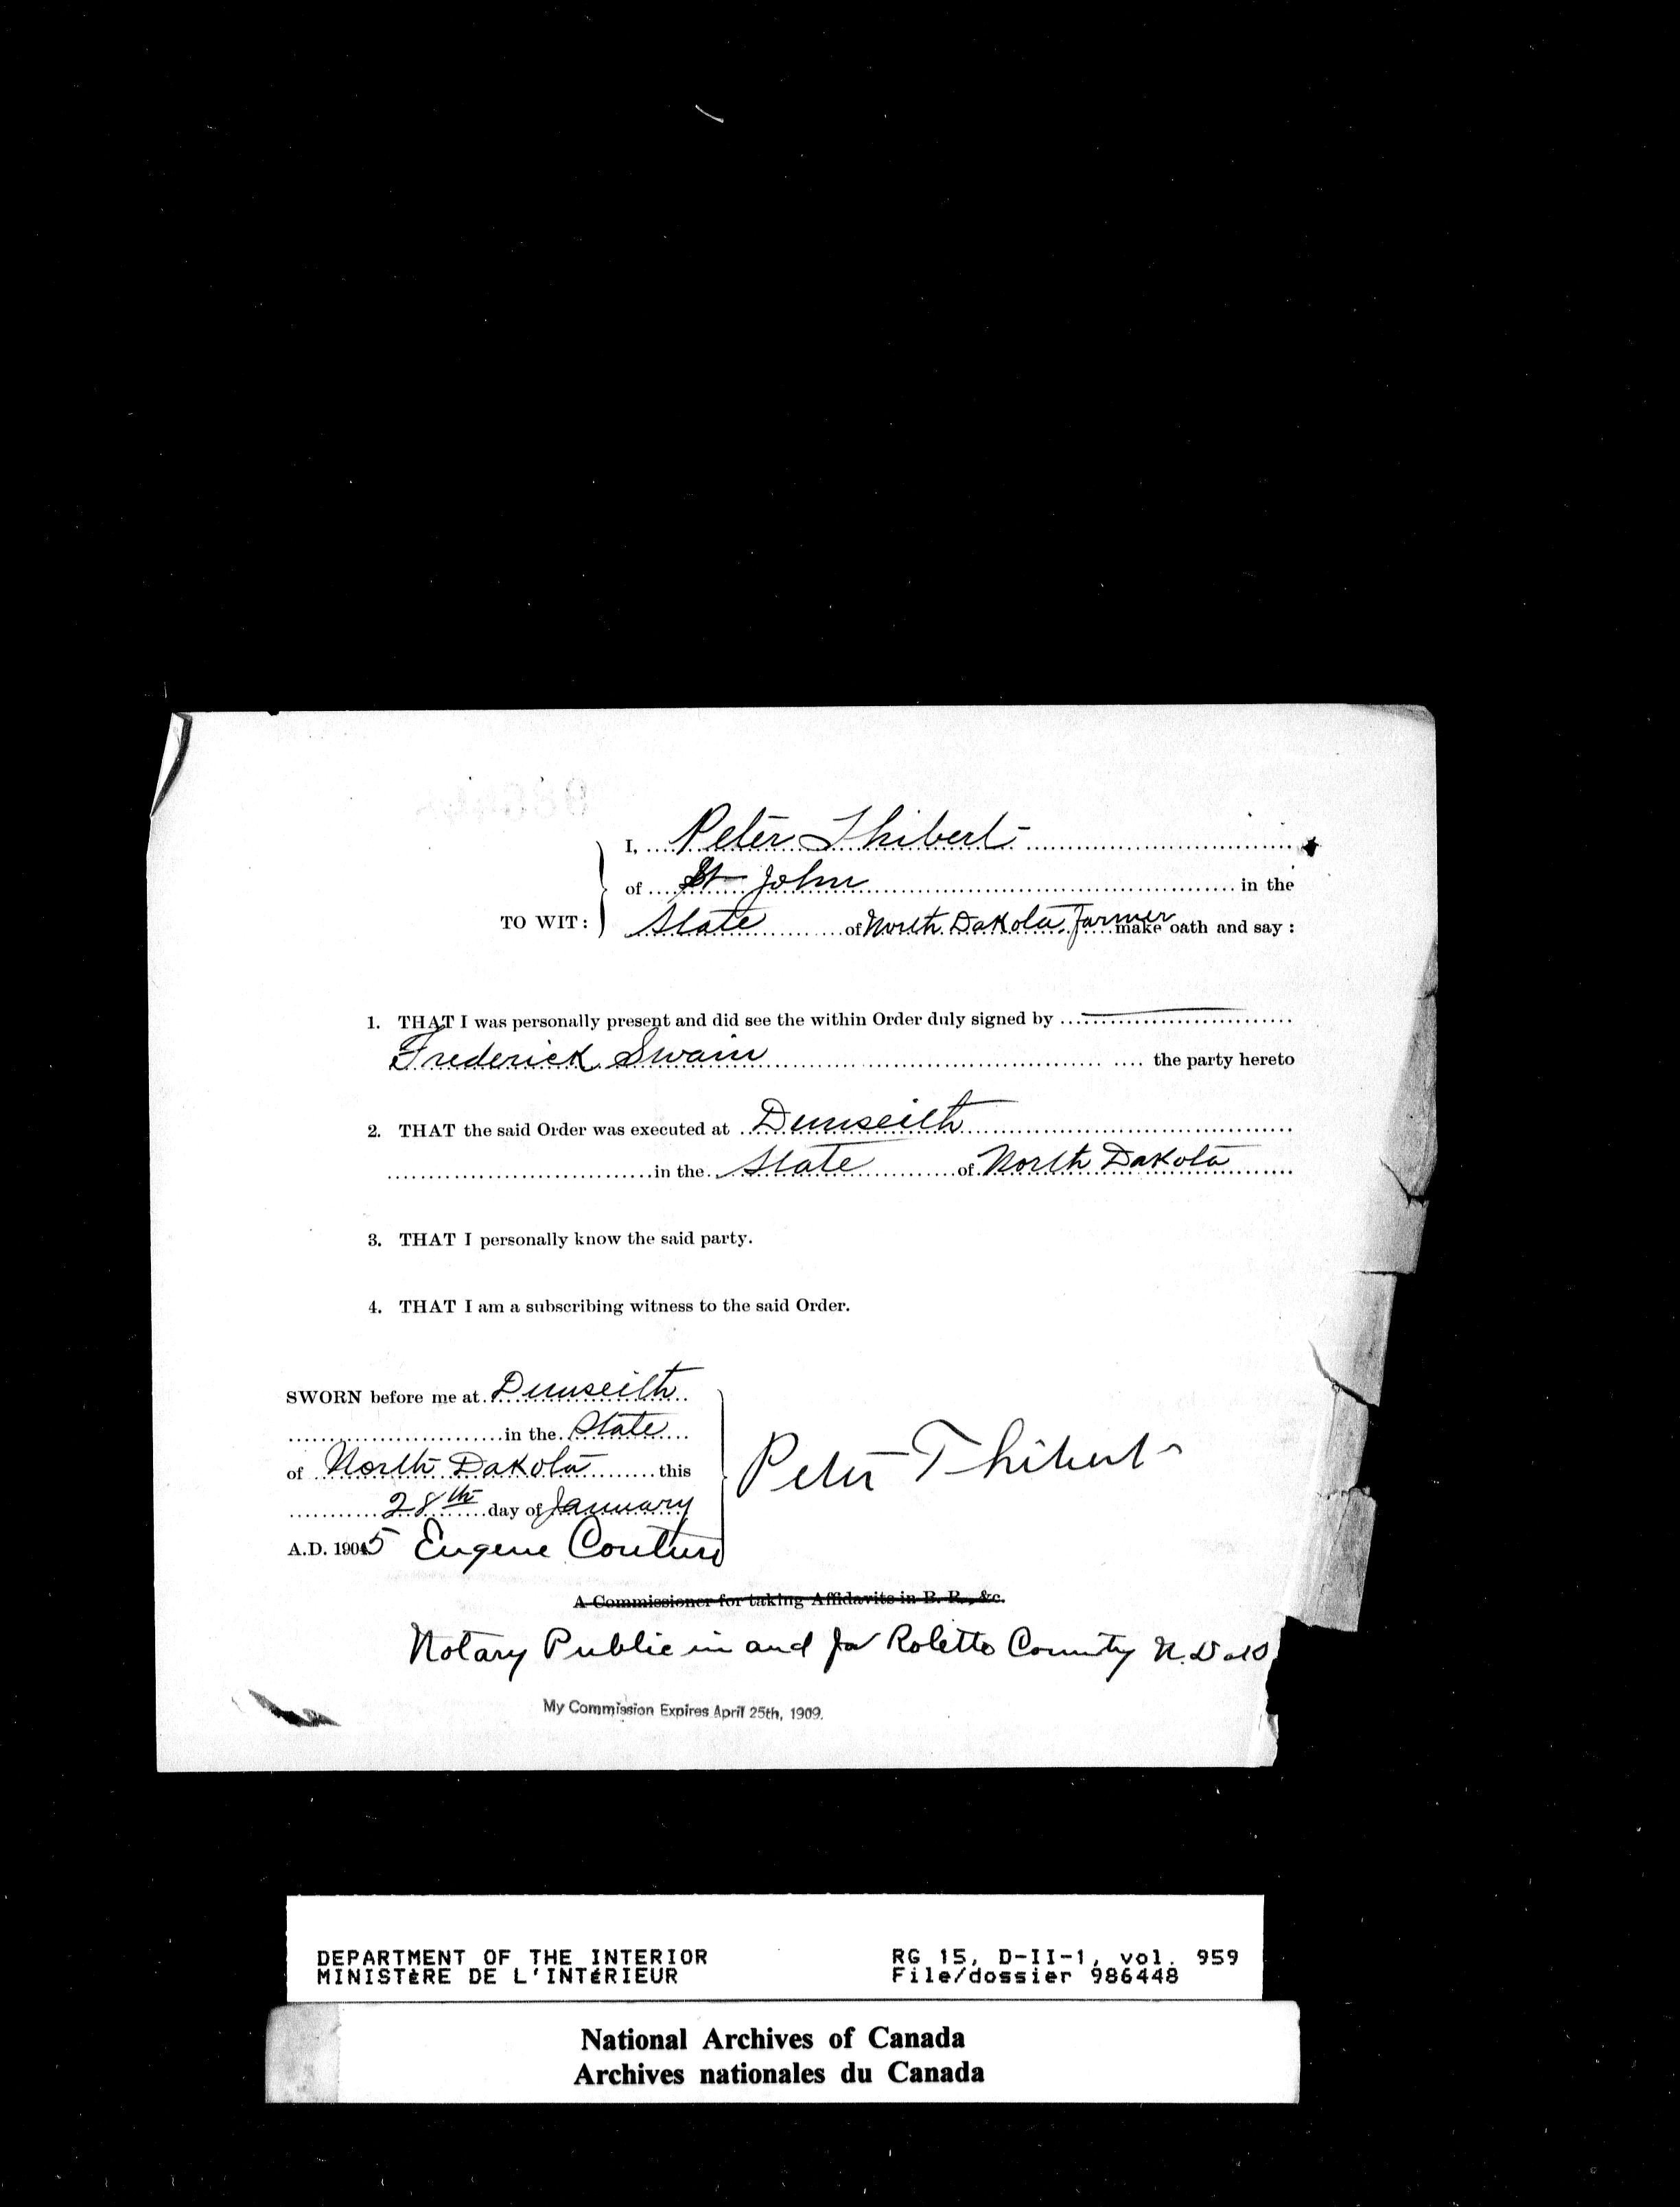 I, Peter Thibert
of St John in the
TO WIT: State of North Dakota, Farmer make oath and say :
1. THAT I was personally present and did see the within Order duly signed by
Frederick Swain the party hereto
2. THAT the said Order was executed at Dunseith
in the State of North Dakota
3. THAT I personally know the said party.
4. THAT I am a subscribing witness to the said Order.
SWORN before me at Dunseith
in the State
of North Dakota this
28th day of January
Peter Thibert
A.D. 1905 Eugene Couture
A Commissioner for taking Affidavits in B. R., &c.
Notary Public in and for Rolette County N. Dak
My Commission Expires April 25th, 1909.
DEPARTMENT OF THE INTERIOR RG 15, D-II-1, vol. 959
MINISTÈRE DE L'INTÉRIEUR File/dossier 986448
National Archives of Canada
Archives nationales du Canada